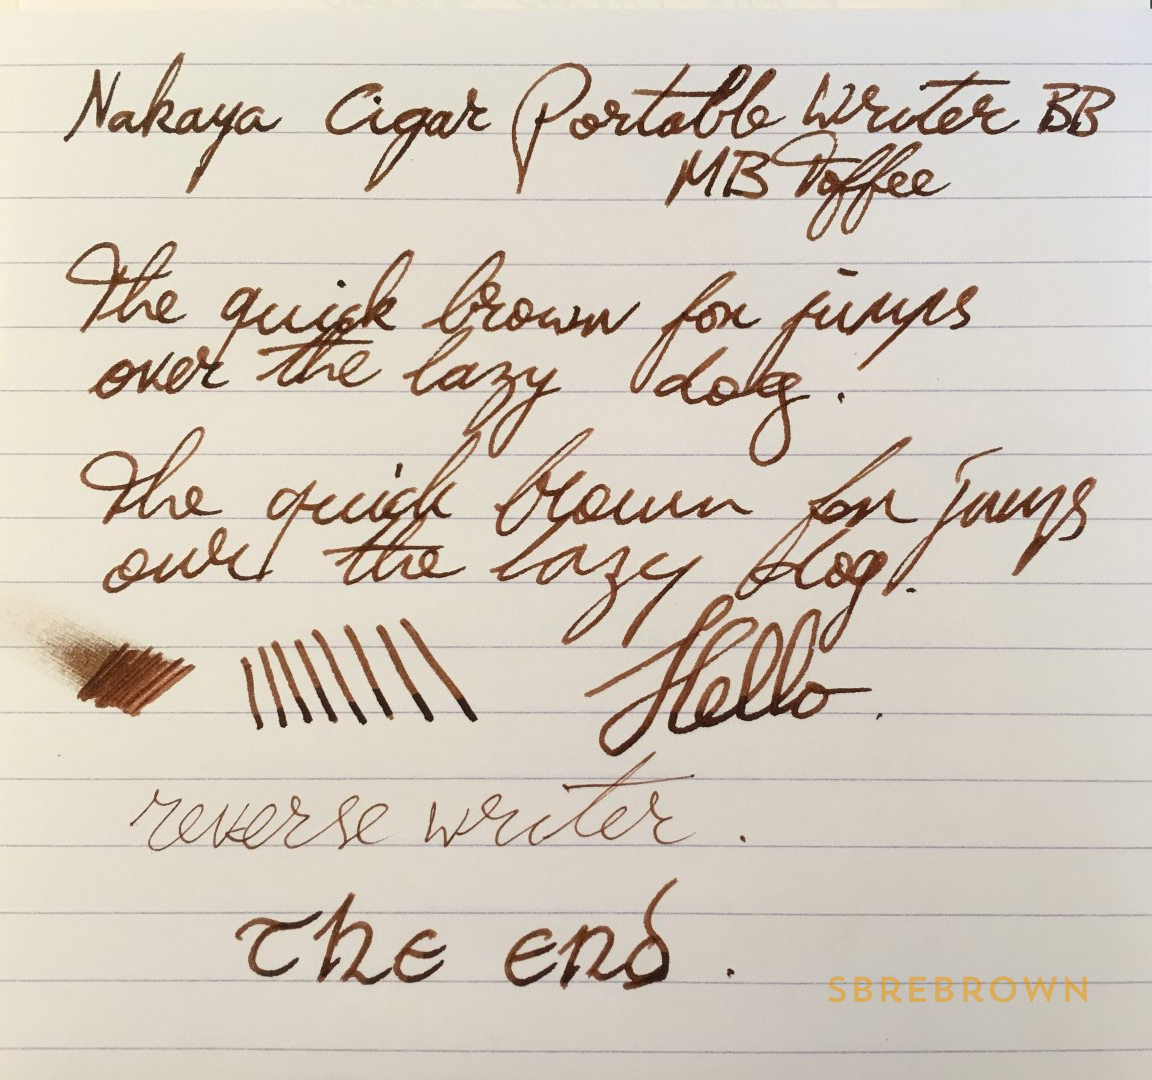 Nakaya Cigar Portable Writer BB
MB Toffee
The quick brown fox jumps
over the lazy dog.
The quick brown fox jumps
over the lazy dog.
Hello.
reverse writer.
The end.
SBREBROWN